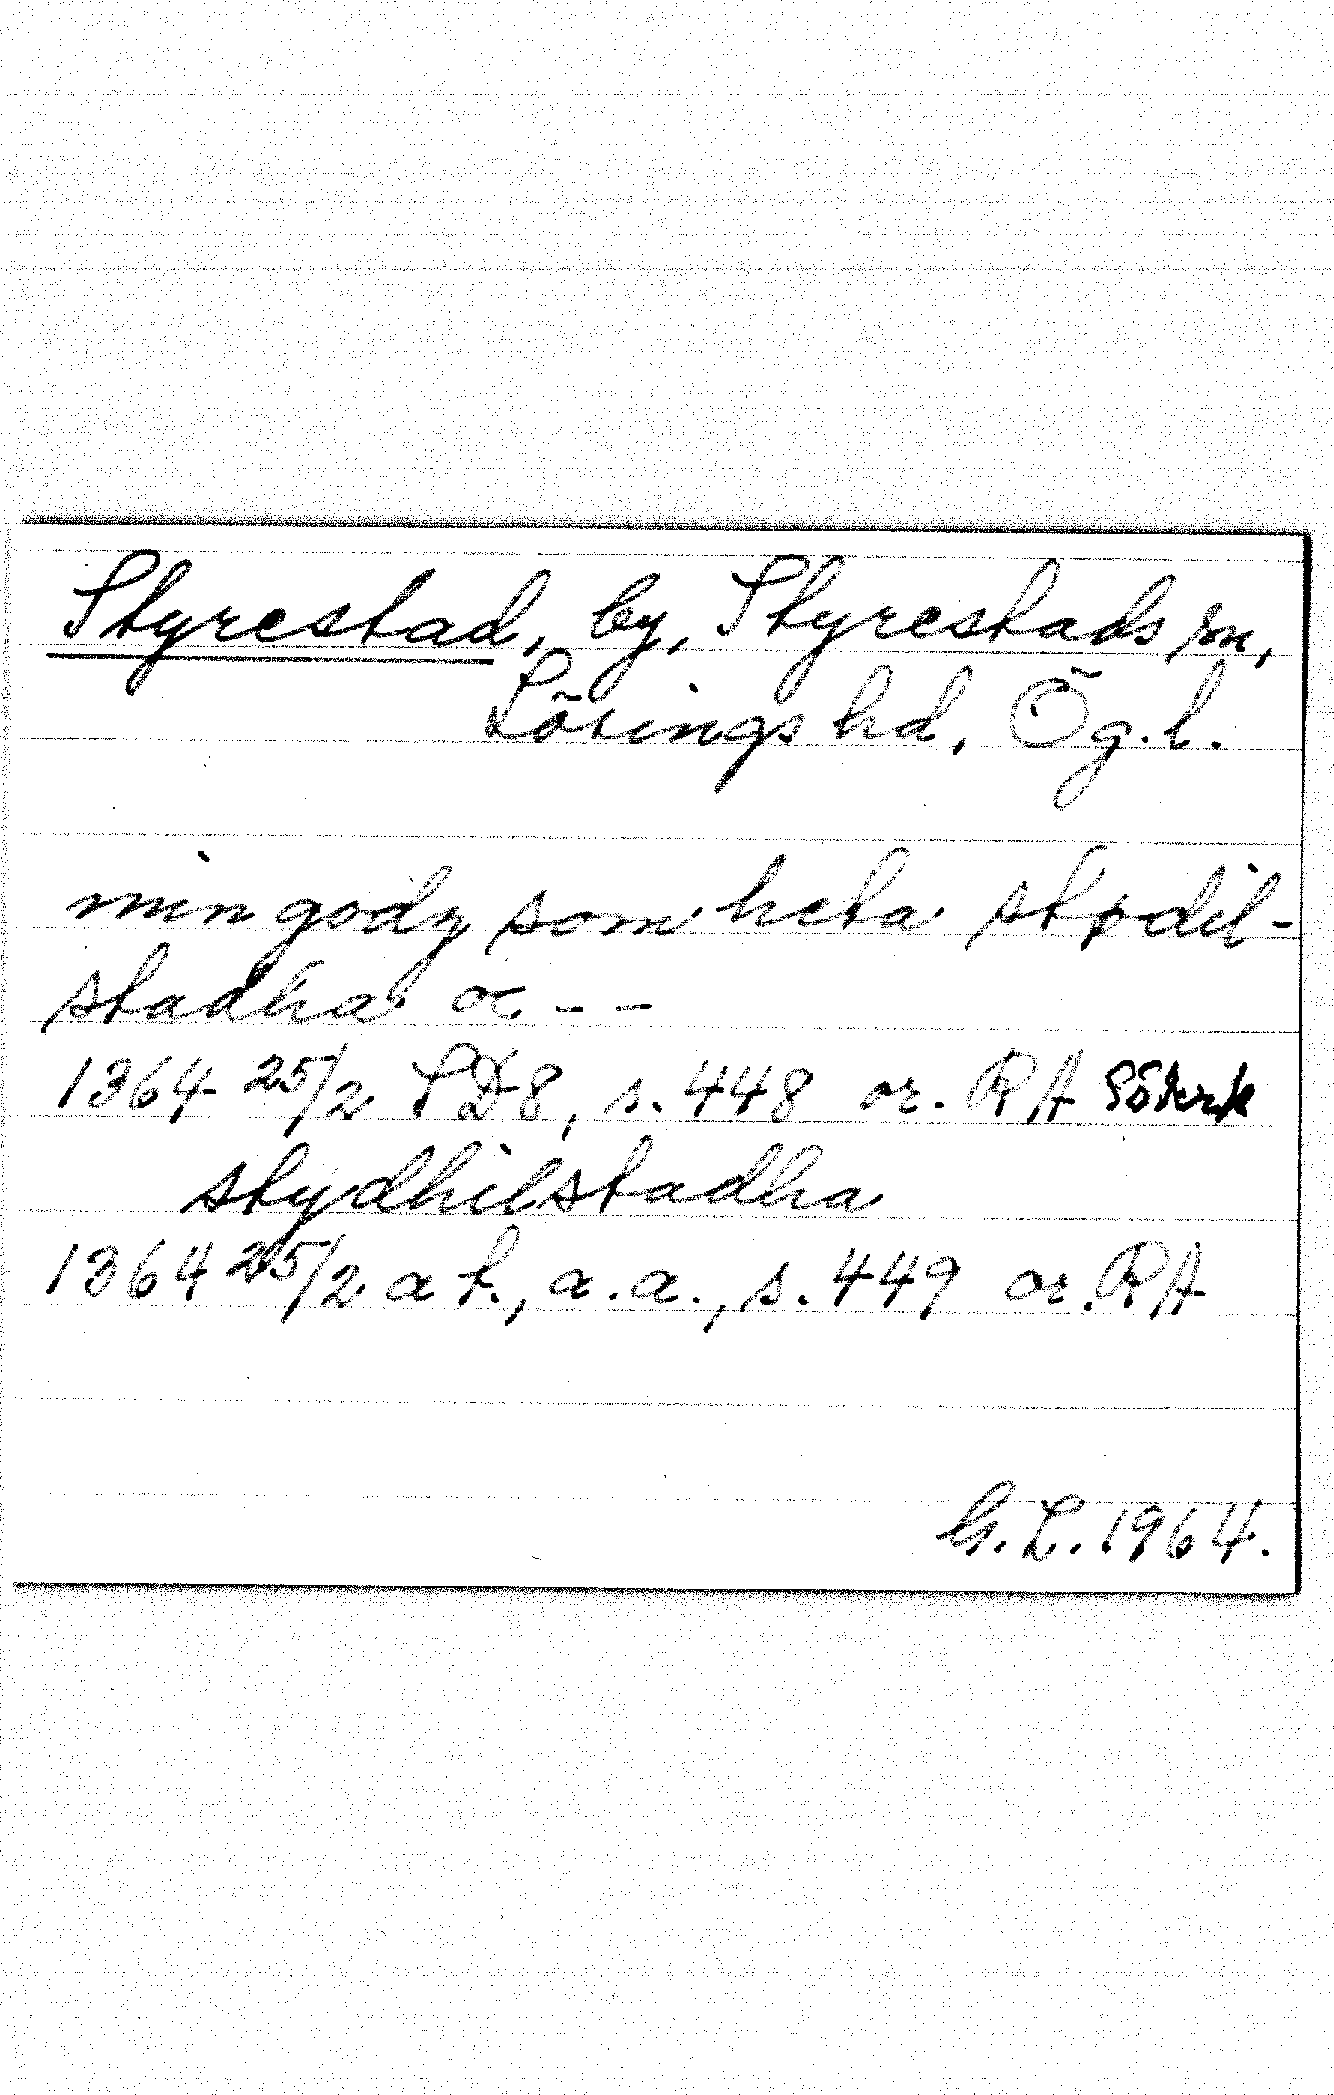 Styrestad, by, Styrestads sn,
Lösings hd, Ög.l.
min godz som heta stødil-
stadha oc - -
1364 25/2 SD8, s. 448 or. RA
stydhilstadha
1364 25/2 a t., a.a., s. 449 or. RA
G. L. 1964.